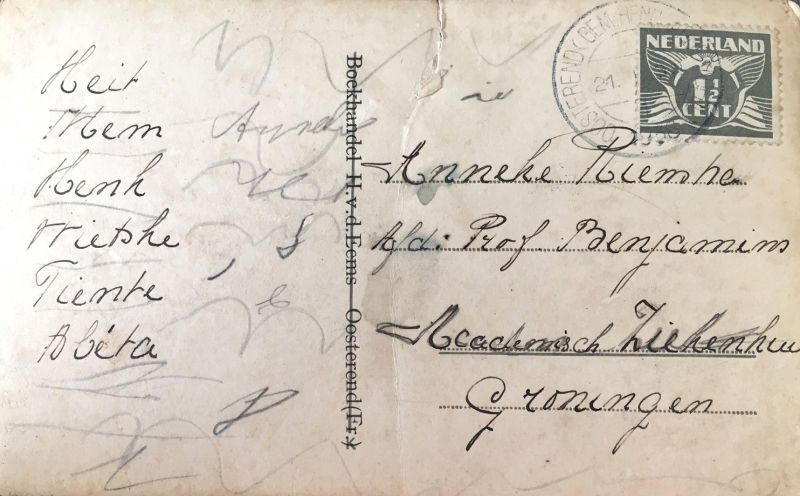 Heit
Mem
Henk
Wietske
Tiente
Abéta
Boekhandel H.v.d.Eems Oosterend (Fr.
NEDERLAND
1½
CENT
21.
Anneke Riemke
Afd. Prof. Benjamins
Academisch Ziekenhuis
Groningen